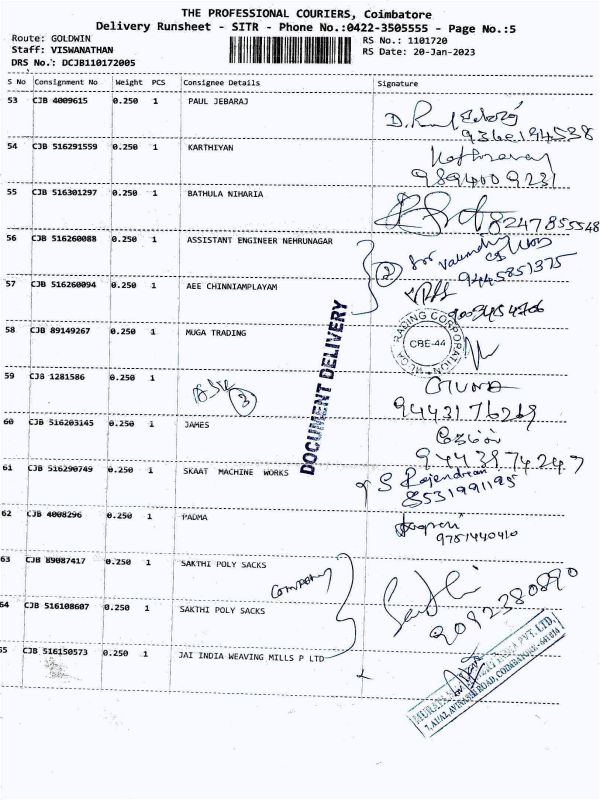 THE PROFESSIONAL COURIERS, Coimbatore
Delivery Runsheet - SITR - Phone No.:0422-3505555 - Page No.:5
Route: GOLDWIN
RS No.: 1101720
Staff: VISWANATHAN
RS Date: 20-Jan-2023
DRS No.: DCJB110172005
S No Consignment No Weight PCS Consignee Details Signature
53 CJB 4009615 0.250 1 PAUL JEBARAJ
54 CJB 516291559 0.250 1 KARTHIYAN
55 CJB 516301297 0.250 1 BATHULA NIHARIA
8247855548
56 CJB 516260088 0.250 1 ASSISTANT ENGINEER NEHRUNAGAR
2
9445851375
57 CJB 516260094 0.250 1 AEE CHINNIAMPLAYAM
58 CJB 89149267 0.250 1 MUGA TRADING
TRADING CORPORATION
CBE-44
DOCUMENT DELIVERY
59 CJB 1281586 0.250 1
3
60 CJB 516203145 0.250 1 JAMES
ஜேம்ஸ்
9443974247
61 CJB 516290749 0.250 1 SKAAT MACHINE WORKS
S Rajendran
8531991195
62 CJB 4008296 0.250 1 PADMA
9751440410
63 CJB 89087417 0.250 1 SAKTHI POLY SACKS
company
9092380890
64 CJB 516108607 0.250 1 SAKTHI POLY SACKS
55 CJB 516150573 0.250 1 JAI INDIA WEAVING MILLS P LTD
PVT. LTD,
ROAD, COIMBATORE-641 014